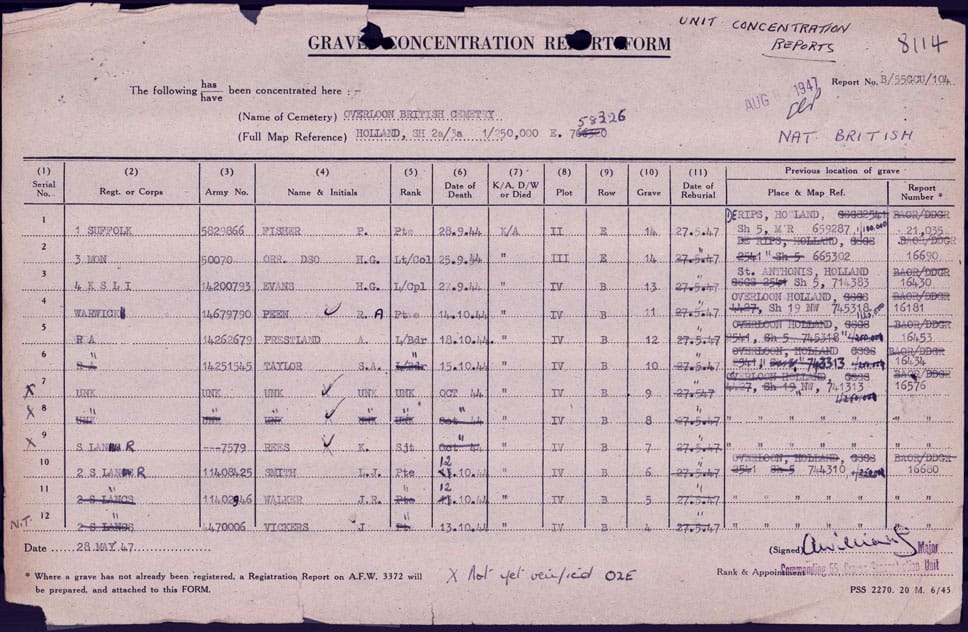 UNIT CONCENTRATION
REPORTS
8114
GRAVE CONCENTRATION REPORT FORM
Report No. B/55GCU/104
The following has/have been concentrated here :-
AUG 1947
(Name of Cemetery) OVERLOON BRITISH CEMETRY
58326
(Full Map Reference) HOLLAND, SH 2a/3a 1/250,000 E.
NAT BRITISH
(1) (2) (3) (4) (5) (6) (7) (8) (9) (10) (11) Previous location of grave
Serial No. Regt. or Corps Army No. Name & Initials Rank Date of Death K/A. D/W or Died Plot Row Grave Date of Reburial Place & Map Ref. Report Number *
1 1 SUFFOLK 5829866 FISHER P. Pte 28.9.44 K/A II E 14 27.5.47 DE RIPS, HOLLAND, GSGS2541 Sh 5, M'R 659287 BAOR/DDGR 21,035
2 3 MON 50070 ORR. DSO H.G. Lt/Col 25.9.44 " III E 14 27.5.47 DE RIPS, HOLLAND, GSGS 2541 Sh 5 665302 BAOR/DDGR 16690
3 4 K S L I 14200793 EVANS H.G. L/Cpl 27.9.44 " IV B 13 27.5.47 St. ANTHONIS, HOLLAND GSGS 2541 Sh 5, 714383 BAOR/DDGR 16430
4 WARWICK 14679790 PEEN R. A Pte 14.10.44 " IV B 11 27.5.47 OVERLOON HOLLAND, GSGS 4427, Sh 19 NW 745318 BAOR/DDGR 16181
5 R A 14262679 PRESTLAND A. L/Bdr 18.10.44 " IV B 12 27.5.47 OVERLOON HOLLAND, GSGS 2541, Sh 5 745318 BAOR/DDGR 16453
6 R A " 14251545 TAYLOR S.A. L/Bdr " 15.10.44 " IV B 10 27.5.47 OVERLOON, HOLLAND GSGS 743313 BAOR/DDGR 16434
X 7 UNK UNK UNK UNK UNK OCT 44 " IV B 9 27.5.47 OVERLOON HOLLAND GSGS 4427, Sh 19 NW, 741313 BAOR/DDGR 16576
X 8 UNK " UNK " UNK " UNK " UNK " Oct 44 " " IV B 8 27.5.47 " " " " " "
X 9 S LAN R ---7579 REES K. Sjt Oct 44 " " IV B 7 27.5.47 " " " " " "
10 2 S LAN R 11408425 SMITH L.J. Pte 12.10.44 " IV B 6 27.5.47 OVERLOON, HOLLAND, GSGS 2541 Sh 5 744310 BAOR/DDGR 16680
11 2 S LANCS " 11402946 WALKER J.R. Pte " 12.10.44 " IV B 5 27.5.47 " " " " " "
N.T. 12 2 S LANCS " 4470006 VICKERS J 13.10.44 " IV B 4 27.5.47 " " " " " "
Date 28 MAY 47
(Signed) Major
Rank & Appointment Commanding 55, Graves Concentration Unit
* Where a grave has not already been registered, a Registration Report on A.F.W. 3372 will
be prepared, and attached to this FORM.
X Not yet verified O2E
PSS 2270. 20 M. 6/45